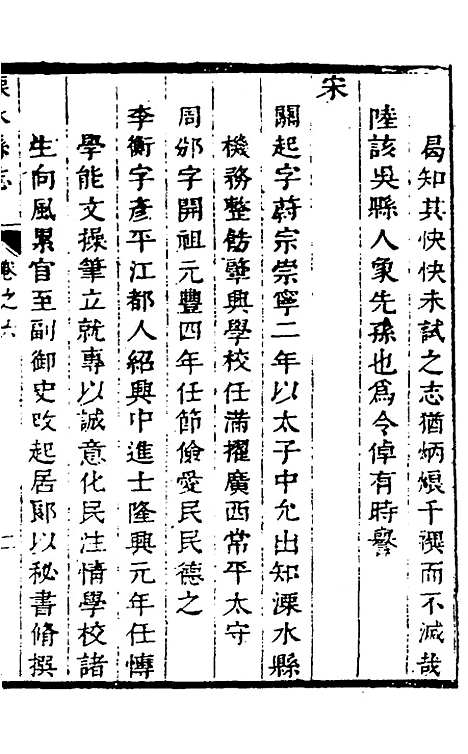 曷知其怏怏未試之志猶炳烺千禩而不滅哉
陸該吳縣人象先孫也爲令倬有時譽
宋
關起字蔚宗崇寧二年以太子中允出知溧水縣
機務整飭肇興學校任滿擢廣西常平太守
周邠字開祖元豐四年任節儉愛民民德之
李衡字彥平江都人紹興中進士隆興元年任愽
學能文操筆立就專以誠意化民注情學校諸
生向風累官至副御史改起居郎以秘書脩撰
溧水縣志
卷之六